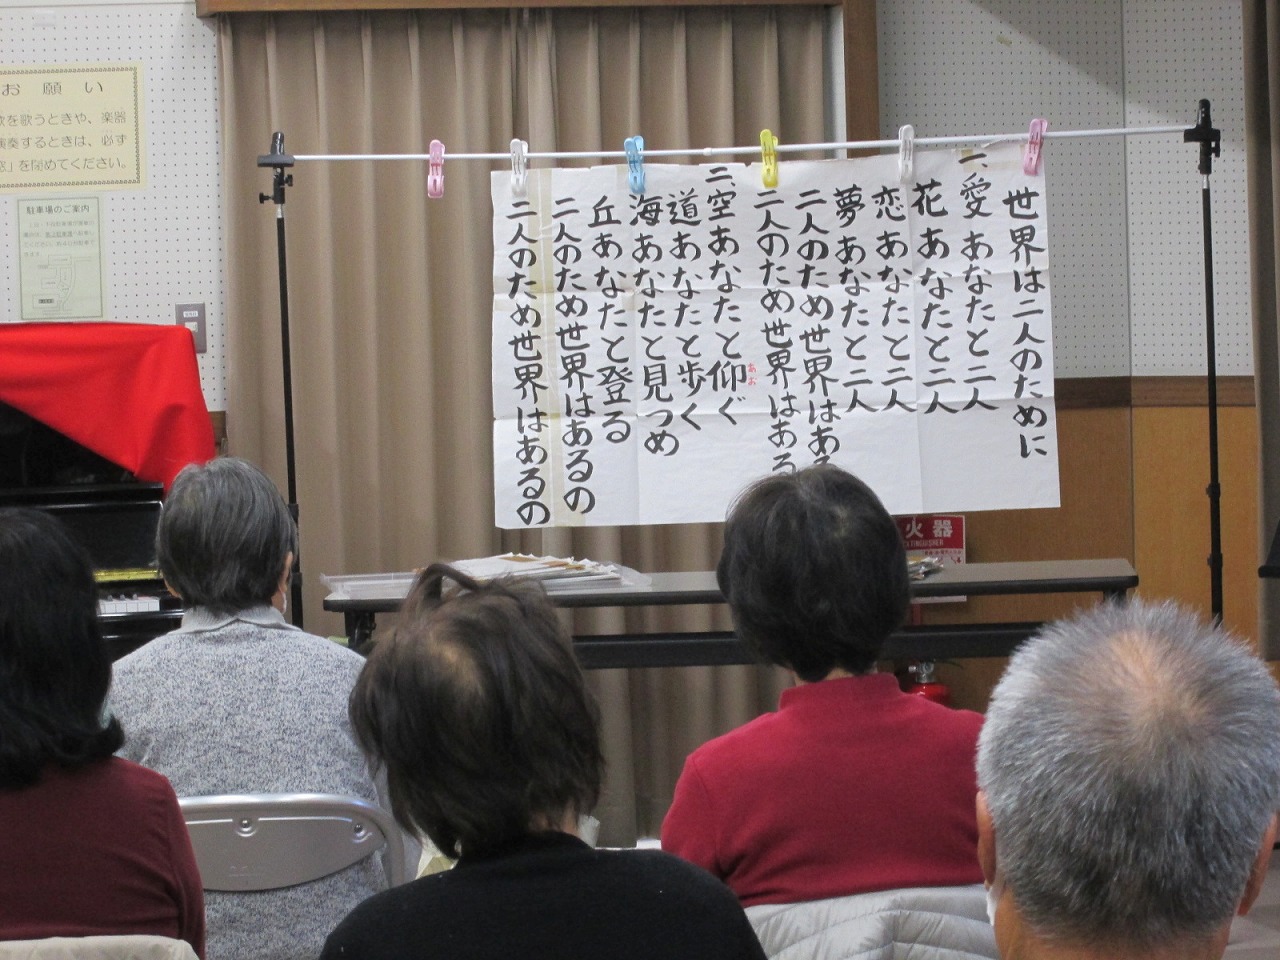 お願い
歌を歌うときや、楽器
演奏するときは、必ず
」を閉めてください。
駐車場のご案内
世界は二人のために
一、愛あなたと二人
花あなたと二人
恋あなたと二人
夢あなたと二人
二人のため世界はある
二人のため世界はある
二、空あなたと仰ぐ
あお
道あなたと歩く
海あなたと見つめ
丘あなたと登る
二人のため世界はあるの
二人のため世界はあるの
火器
EXTINGUISHER